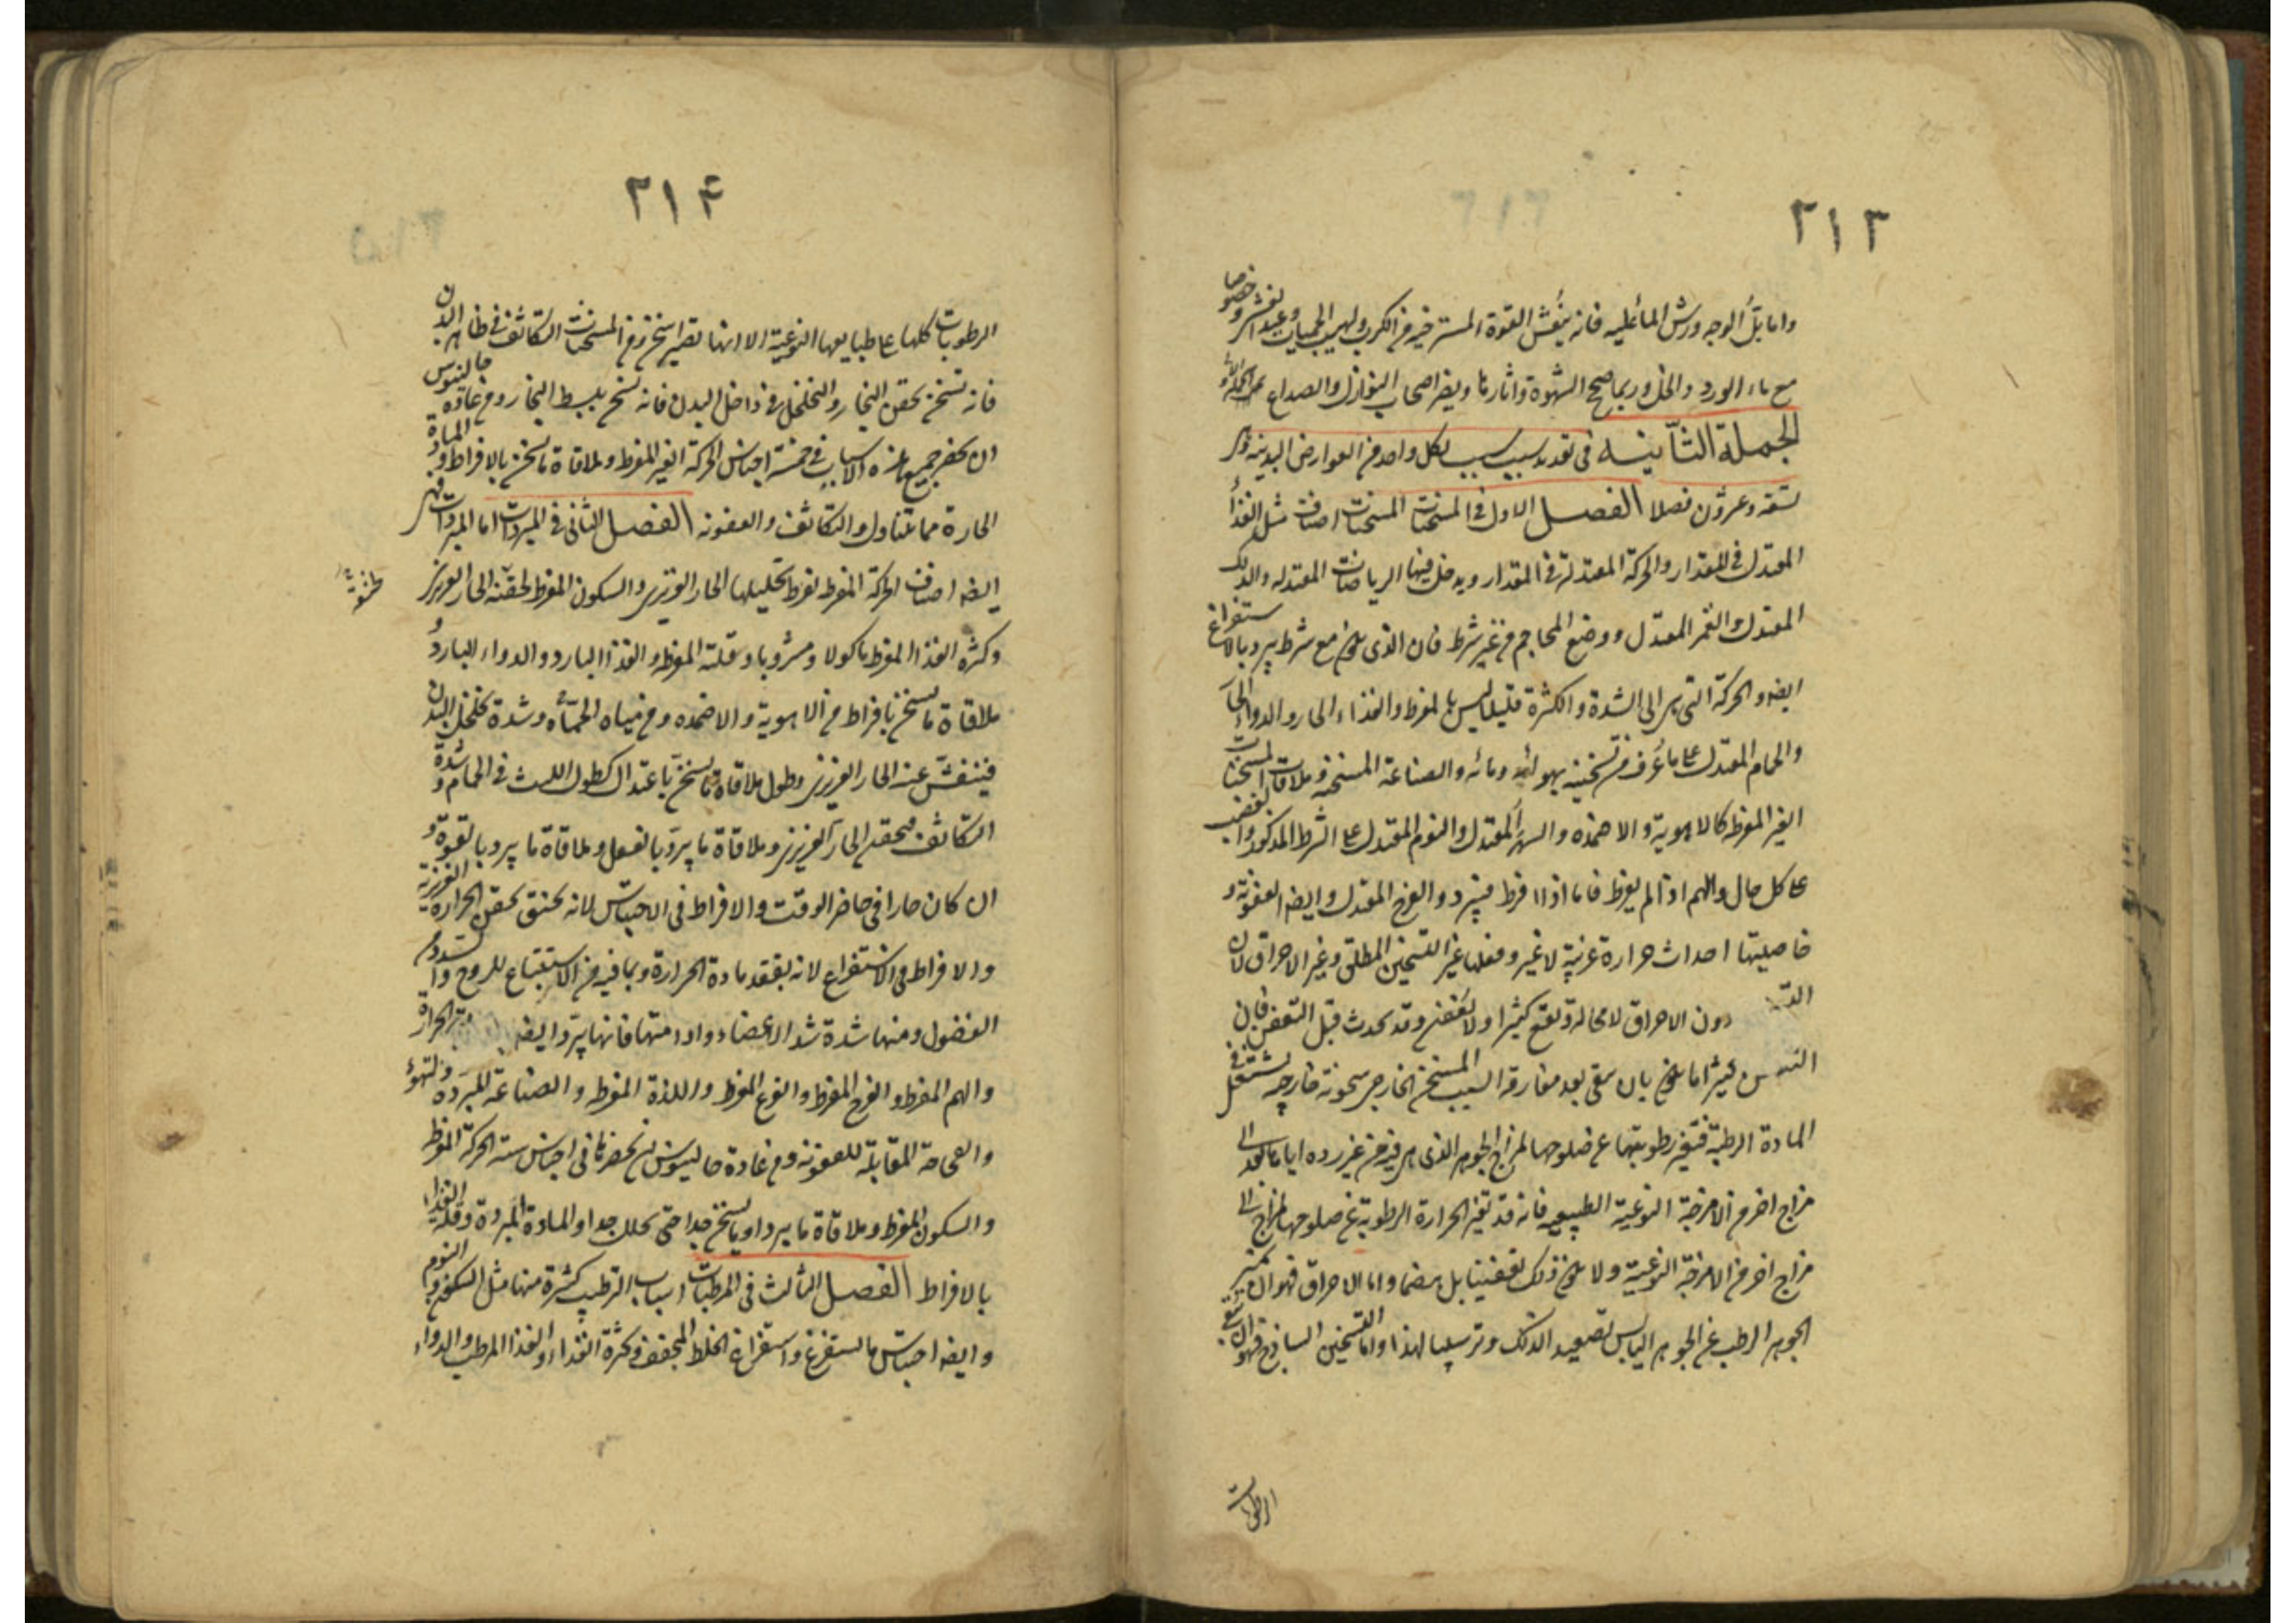 ٢١٣
واما بل الوجه ورش الماء عليه فانه ينعش القوة المسترخية من الكرب ولهيب الحميات وعند الغشي وخصوصا
مع ماء الورد والخل وربما صحح الشهوة واثارها ويضر اصحاب النوازل والصداع
الجملة الثانية في تعديد سبب سبب لكل واحد من العوارض البدنية وهي
تسعة وعشرون فصلا الفصل الاول في المسخنات المسخنات اصناف مثل الغذاء
المعتدل في المقدار والحركة المعتدلة في المقدار ويدخل فيها الرياضات المعتدلة والدلك
المعتدل والغمز المعتدل ووضع المحاجم من غير شرط فان الذي يكون مع شرط يبرد بالاستفراغ
ايضا والحركة التي هي الى الشدة والكثرة قليلا ليس بالمفرط والغذاء الحار والدواء الحار
والحمام المعتدل على ما عرف من تسخينه بهوائه ومائه والصناعة المسخنة وملاقات المسخنات
الغير المفرطة كالاهوية والاضمدة والسهر المعتدل والنوم المعتدل على الشرط المذكور والغضب
على كل حال والهم اذا لم يفرط فاما اذا افرط فيبرد والفرح المعتدل وايضا العفونة و
خاصيتها احداث حرارة غريبة لا غير وفعلها غير التسخين المطلق وغير الاحراق لان
دون الاحراق لا محالة ويقع كثيرا ولا يعفن وقد يحدث قبل التعفن فان
كثيرا ما يكون بان يبقى بعد مفارقة السبب المسخن الخارجي سخونة خارجية يشتعل في
المادة الرطبة فتغير رطوبتها عن صلوحها لمزاج الجوهر الذي هي فيه من غير رده اياها بعد الى
مزاج اخر من الامزجة النوعية الطبيعية فانه قد تغير الحرارة الرطوبة عن صلوحها لمزاج الى
مزاج اخر من الامزجة النوعية ولا يكون ذلك تعفينا بل هضما واما الاحراق فهو ان يميز
الجوهر الرطب عن الجوهر اليابس تصعيدا لذلك وترسيبا لهذا واما التسخين الساذج فهو ان يبقى
الرطوبات
٢١۴
الرطوبات كلها على طبايعها النوعية الا انها تصير اسخن ومن المسخنات التكاثف في ظاهر البدن
فانه تسخن بحقن البخار والتخلخل في داخل البدن فانه تسخن ببسط البخار ومن عادة جالينوس
ان يحصر جميع هذه الاسباب في خمسة اجناس الحركة الغير المفرط وملاقاة ما يسخن بالافراط والمادة
الحارة مما يتناول والتكاثف والعفونة الفصل الثاني في المبردات اما المبردات فهي
ايضا اصناف الحركة المفرط لفرط تحليلها الحار الغريزي والسكون المفرط لخنقه الحار الغريزي
وكثرة الغذاء المفرط ماكولا ومشروبا وقلته المفرط والغذاء البارد والدواء البارد و
ملاقاة ما يسخن بافراط من الاهوية والاضمدة ومن مياه الحمآه وشدة تخلخل البدن
فينفش عنه الحار الغريزي وطول ملاقاة ما يسخن باعتدال كطول اللبث في الحمام وشدة
التكاثف فيحقن الحار الغريزي وملاقاة ما يبرد بالفعل وملاقاة ما يبرد بالقوة و
ان كان حارا في حاضر الوقت والافراط في الاحتباس لانه يخنق بحقن الحرارة الغريزية
والافراط في الاستفراغ لانه يفقد مادة الحرارة وبما فيه من الاستتباع للروح والسدد من
الفضول ومنها شدة شد الاعضاء وادامتها فانها يبرد ايضا الحرارة
والهم المفرط والفرح المفرط والفزع المفرط واللذة المفرط والصناعة المبردة والنهوء
والفجاجة المقابلة للعفونة ومن عادة جالينوس ان يحصرها في اجناس ستة الحركة المفرط
والسكون المفرط وملاقاة ما يبرد او ما يسخن جدا حتى يحلل جدا والمادة المبردة وقلة الغذاء
بالافراط الفصل الثالث في المرطبات اسباب الترطيب كثيرة منها مثل السكون والنوم
وايضا احتباس ما يستفرغ واستفراغ الخلط المجفف وكثرة الغذاء والغذاء المرطب والدواء